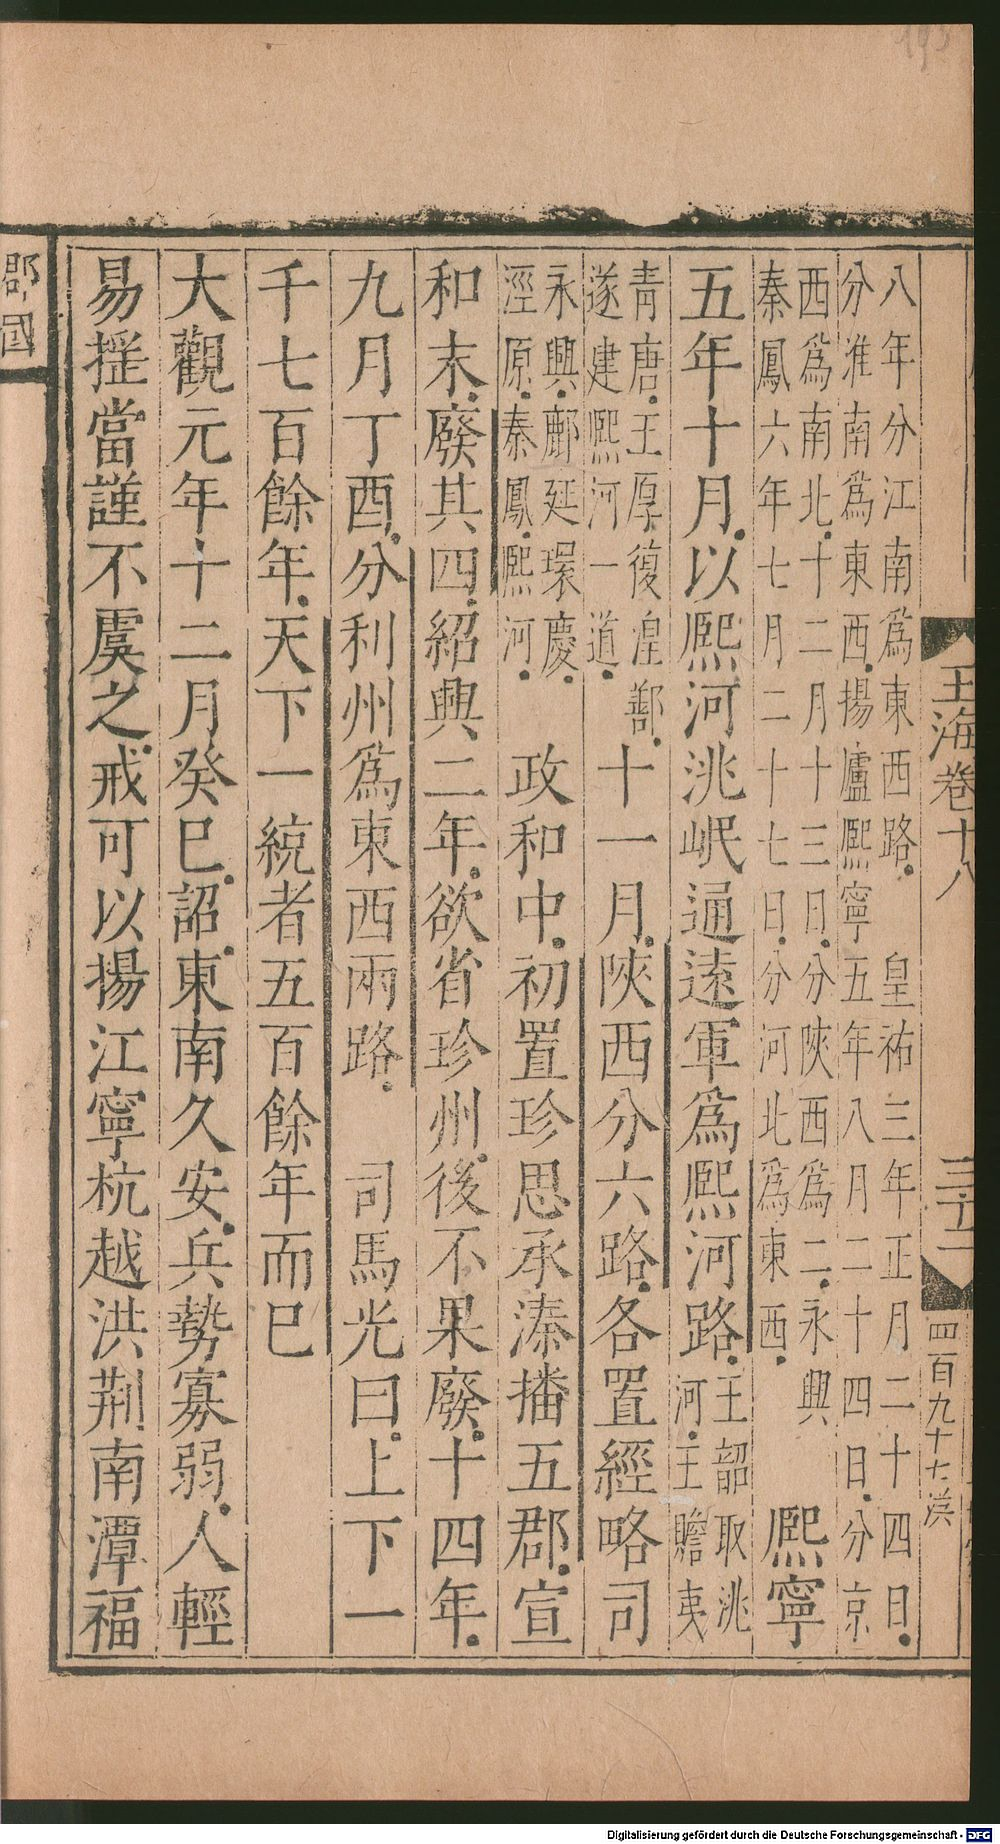 八年分江南爲東西路皇祐三年正月二十四日
分淮南爲東西揚廬熙寧五年八月二十四日分京
西爲南北十二月十三日分陝西爲二永興
秦鳳六年七月二十七日分河北爲東西
熙寧
五年十月以熙河洮岷通遠軍爲熙河路
王韶取洮
河王贍夷
青唐王厚復湟鄯
遂建熙河一道
十一月陝西分六路各置經略司
永興鄜延環慶
涇原秦鳳熙河
政和中初置珍思承溱播五郡宣
和末廢其四紹興二年欲省珍州後不果廢十四年
九月丁酉分利州爲東西兩路 司馬光曰上下一
千七百餘年天下一統者五百餘年而已
大觀元年十二月癸巳詔東南久安兵勢寡弱人輕
易揺當謹不虞之戒可以揚江寧杭越洪荆南潭福
郡國
玉海卷十八
三十一
四百九十七
洪
Digitalisierung gefördert durch die Deutsche Forschungsgemeinschaft - DFG